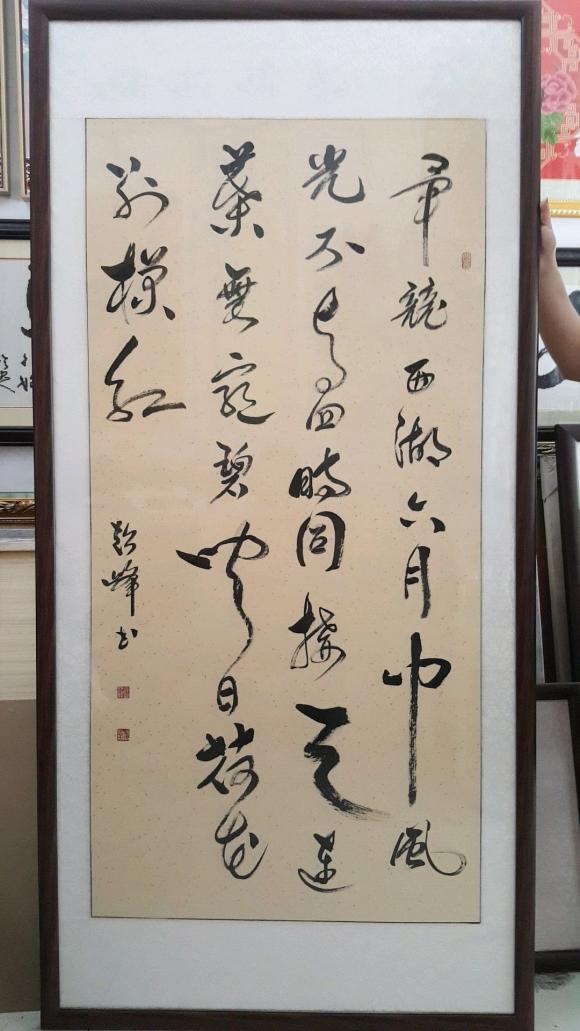 畢競西湖六月中風
光不与四時同接天蓮
葉無窮碧映日荷花
别樣紅
峰书